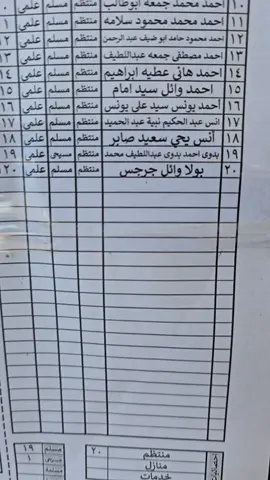 ١٠ احمد محمد جمعه ابوطالب منتظم مسلم علمى
١١ احمد محمد محمود سلامه منتظم مسلم علمى
١٢ احمد محمود حامد ابو ضيف عبد الرحمن منتظم مسلم علمى ١٢
١٣ احمد مصطفى جمعه عبداللطيف منتظم مسلم علمى ١٣
١٤ احمد هانى عطيه ابراهيم منتظم مسلم علمى ١٤
١٥ احمد وائل سيد امام منتظم مسلم علمى ١٥
١٦ احمد يونس سيد على يونس منتظم مسلم علمى ١٦
١٧ انس عبد الحكيم نبية عبد الحميد منتظم مسلم علمى ١٧
١٨ أنس يحي سعيد صابر منتظم مسلم علمى ١٨
١٩ بدوى احمد بدوى عبداللطيف محمد منتظم مسيحى علمى ١٩
٢٠ بولا وائل جرجس منتظم مسلم علمى ٢٠
منتظم ٢٠ مسلم ١٩
منازل ١
خدمات